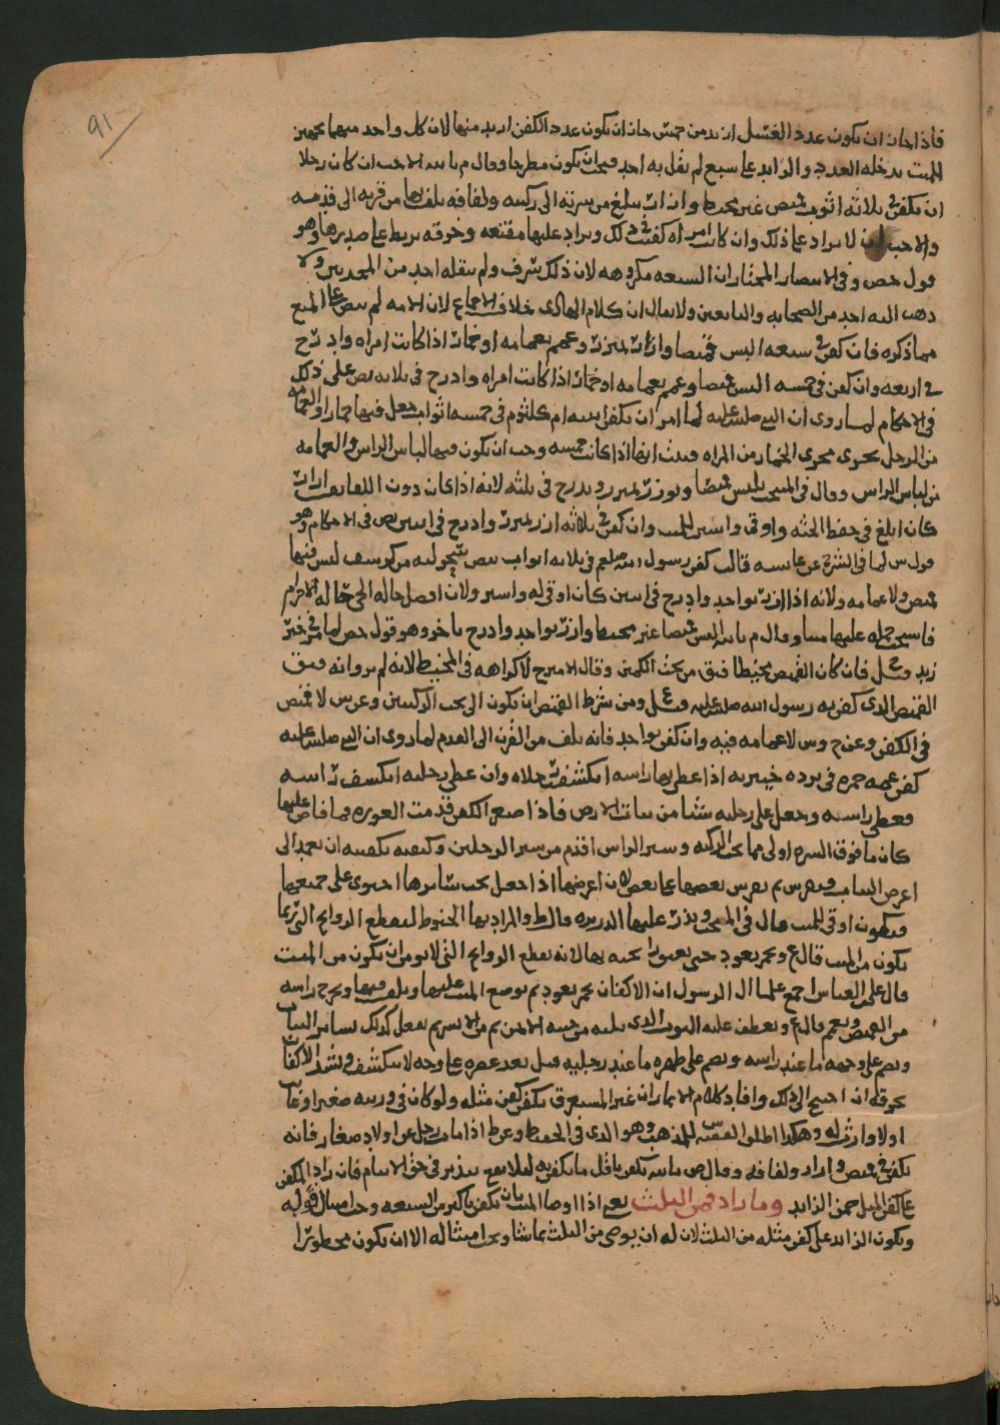 91
فاذا جاز ان يكون عدد الغسل ازيد من خمس جاز ان يكون عدد الكفن ازيد منها لان كل واحد منهما تجهيز
الميت يدخله العدد والزايد على سبع لم يقل به احد فيجب ان يكون مطرحا وقال م بالله الاحب ان كان رجلا
ان يكفن في ثلاثه اثواب قميص غير مخيط وازار يبلغ من سرته الى ركبته ولفافه يلف بها من قرنه الى قدمه
والاحب ان لا يزاد على ذلك وان كانت امراه كفنت في ذلك ويزاد عليها مقنعه وخرقه تربط على صدرها وهو
قول حص وفي الانتصار المختار ان السبعه مكروهه لان ذلك سرف ولم ينقله احد من المحدثين ولا
ذهب اليه احد من الصحابه والتابعين ولا يقال ان كلام الهادى خلاف الاجماع لان الامه لم ينص على المنع
مما ذكره فان كفن في سبعه البس قميصا وازر بمئزر وعمم بعمامه او خمار اذا كانت امراه وادرج
في اربعه وان كفن في خمسه البس قميصا وعمم بعمامه او خمار اذا كانت امراه وادرج في ثلاثه نص على ذلك
في الاحكام لما روى ان النبي صلى الله عليه لما امر ان تكفن ابنته ام كلثوم في خمسه اثواب جعل فيها خمارا والعمامه
من الرجل تجرى مجرى الخمار من المراه فثبت انها اذا كانت خمسه وجب ان يكون فيها لباس الراس والعمامه
من لباس الراس وقال في المنتخب يلبس قميصا ويوزر بمئزر ويدرج في ثلثه لانه اذا كان دون اللفايف ازار
كان ابلغ في حفظ الجثه واوقى واستر للميت وان كفن في ثلاثه ازر بمئزر وادرج في اثنين نص في الاحكام وهو
قول س لما في الشرح عن عايشه قالت كفن رسول الله صلعم في ثلاثه اثواب بيض سحوليه من كرسف ليس فيها
قميص ولا عمامه ولانه اذا ازر بواحد وادرج في اثنين كان اوقى له واستر ولان افضل حاله الحي حاله الاحرام
فاستحب حمله عليها ميتا وقال م بالله البس قميصا غير مخيط وازر بواحد وادرج باخر وهو قول حص لما مر في خبر
زيد وقيل فان كان القميص مخيطا فتق من تحت الكمين وقال لا كراهه في المخيط لانه لم يرو انه فتق
القميص الذى كفن به رسول الله صلى الله عليه وقيل ومن شرط القميص ان يكون الى تحت الركبتين وعن س لا قميص
في الكفن وعن ح وس لا عمامه فيه وان كفن بواحد فانه يلف من القرن الى القدم لما روى ان النبي صلى الله عليه
كفن عمه حمزه في برده خيبريه اذا غطى بها راسه انكشفت رجلاه وان غطى رجليه انكشف راسه
فغطى راسه وجعل على رجليه شيئا من نبات الارض فاذا ضاع الكفن قدمت العوره فما فاض عليها
كان ما فوق السره اولى مما تحت الركبه وستر الراس اقدم من ستر الرجلين وكيفيه تكفينه ان يعمد الى
اعرض الثياب فيفرش ثم يفرش بعضها على بعض لان اعرضها اذا جعل تحت سايرها احتوى على جميعها
فيكون اوقى للميت قال في المنتخب ويذر عليها الذريره قال ط والمراد بها الحنوط ليقطع الروايح التي ربما
تكون من الميت قال ع وتجمر بعود حتى يعبق رايحته بها لانه يقطع الروايح التي لا يومن ان تكون من الميت
قال على بن العباس اجمع علما ال الرسول ان الاكفان تجمر بعود ثم يوضع الميت عليها ويلف فيها ويخرج راسه
من القميص ويعمم قال ع ويعطف عليه الثوب الذى يليه من جنبه الايمن ثم من الايسر ثم يفعل كذلك بساير الثياب
ويضم على وجهه ما عند راسه ويضم على ظهره ما عند رجليه قبل بعد عصره على وجه لا ينكشف وتشد الاكفان
بخرقه ان احتيج الى ذلك وافاد كلام الامام ان غير المستغرق يكفن كفن مثله ولو كان في ورثته صغير او غايب
اولا وارث له وهكذا اطلق الفقيه س للمذهب وهو الذى في الحفيظ وعن ط اذا مات رجل عن اولاد صغار فانه
يكفن في قميص وازار ولفافه وقال ص بالله يكفن باقل ما يكفن به لئلا يقع تبذير في حق الايتام فان زاد المكفن
على كفن المثل ضمن الزايد وما زاد فمن الثلث يعني اذا اوصا الميت بان يكفن باكثر من السبعه وجب امتثال قوله
ويكون الزايد على كفن مثله من الثلث لان له ان يوصى من الثلث بما شا ويجب امتثاله الا ان يكون محظورا